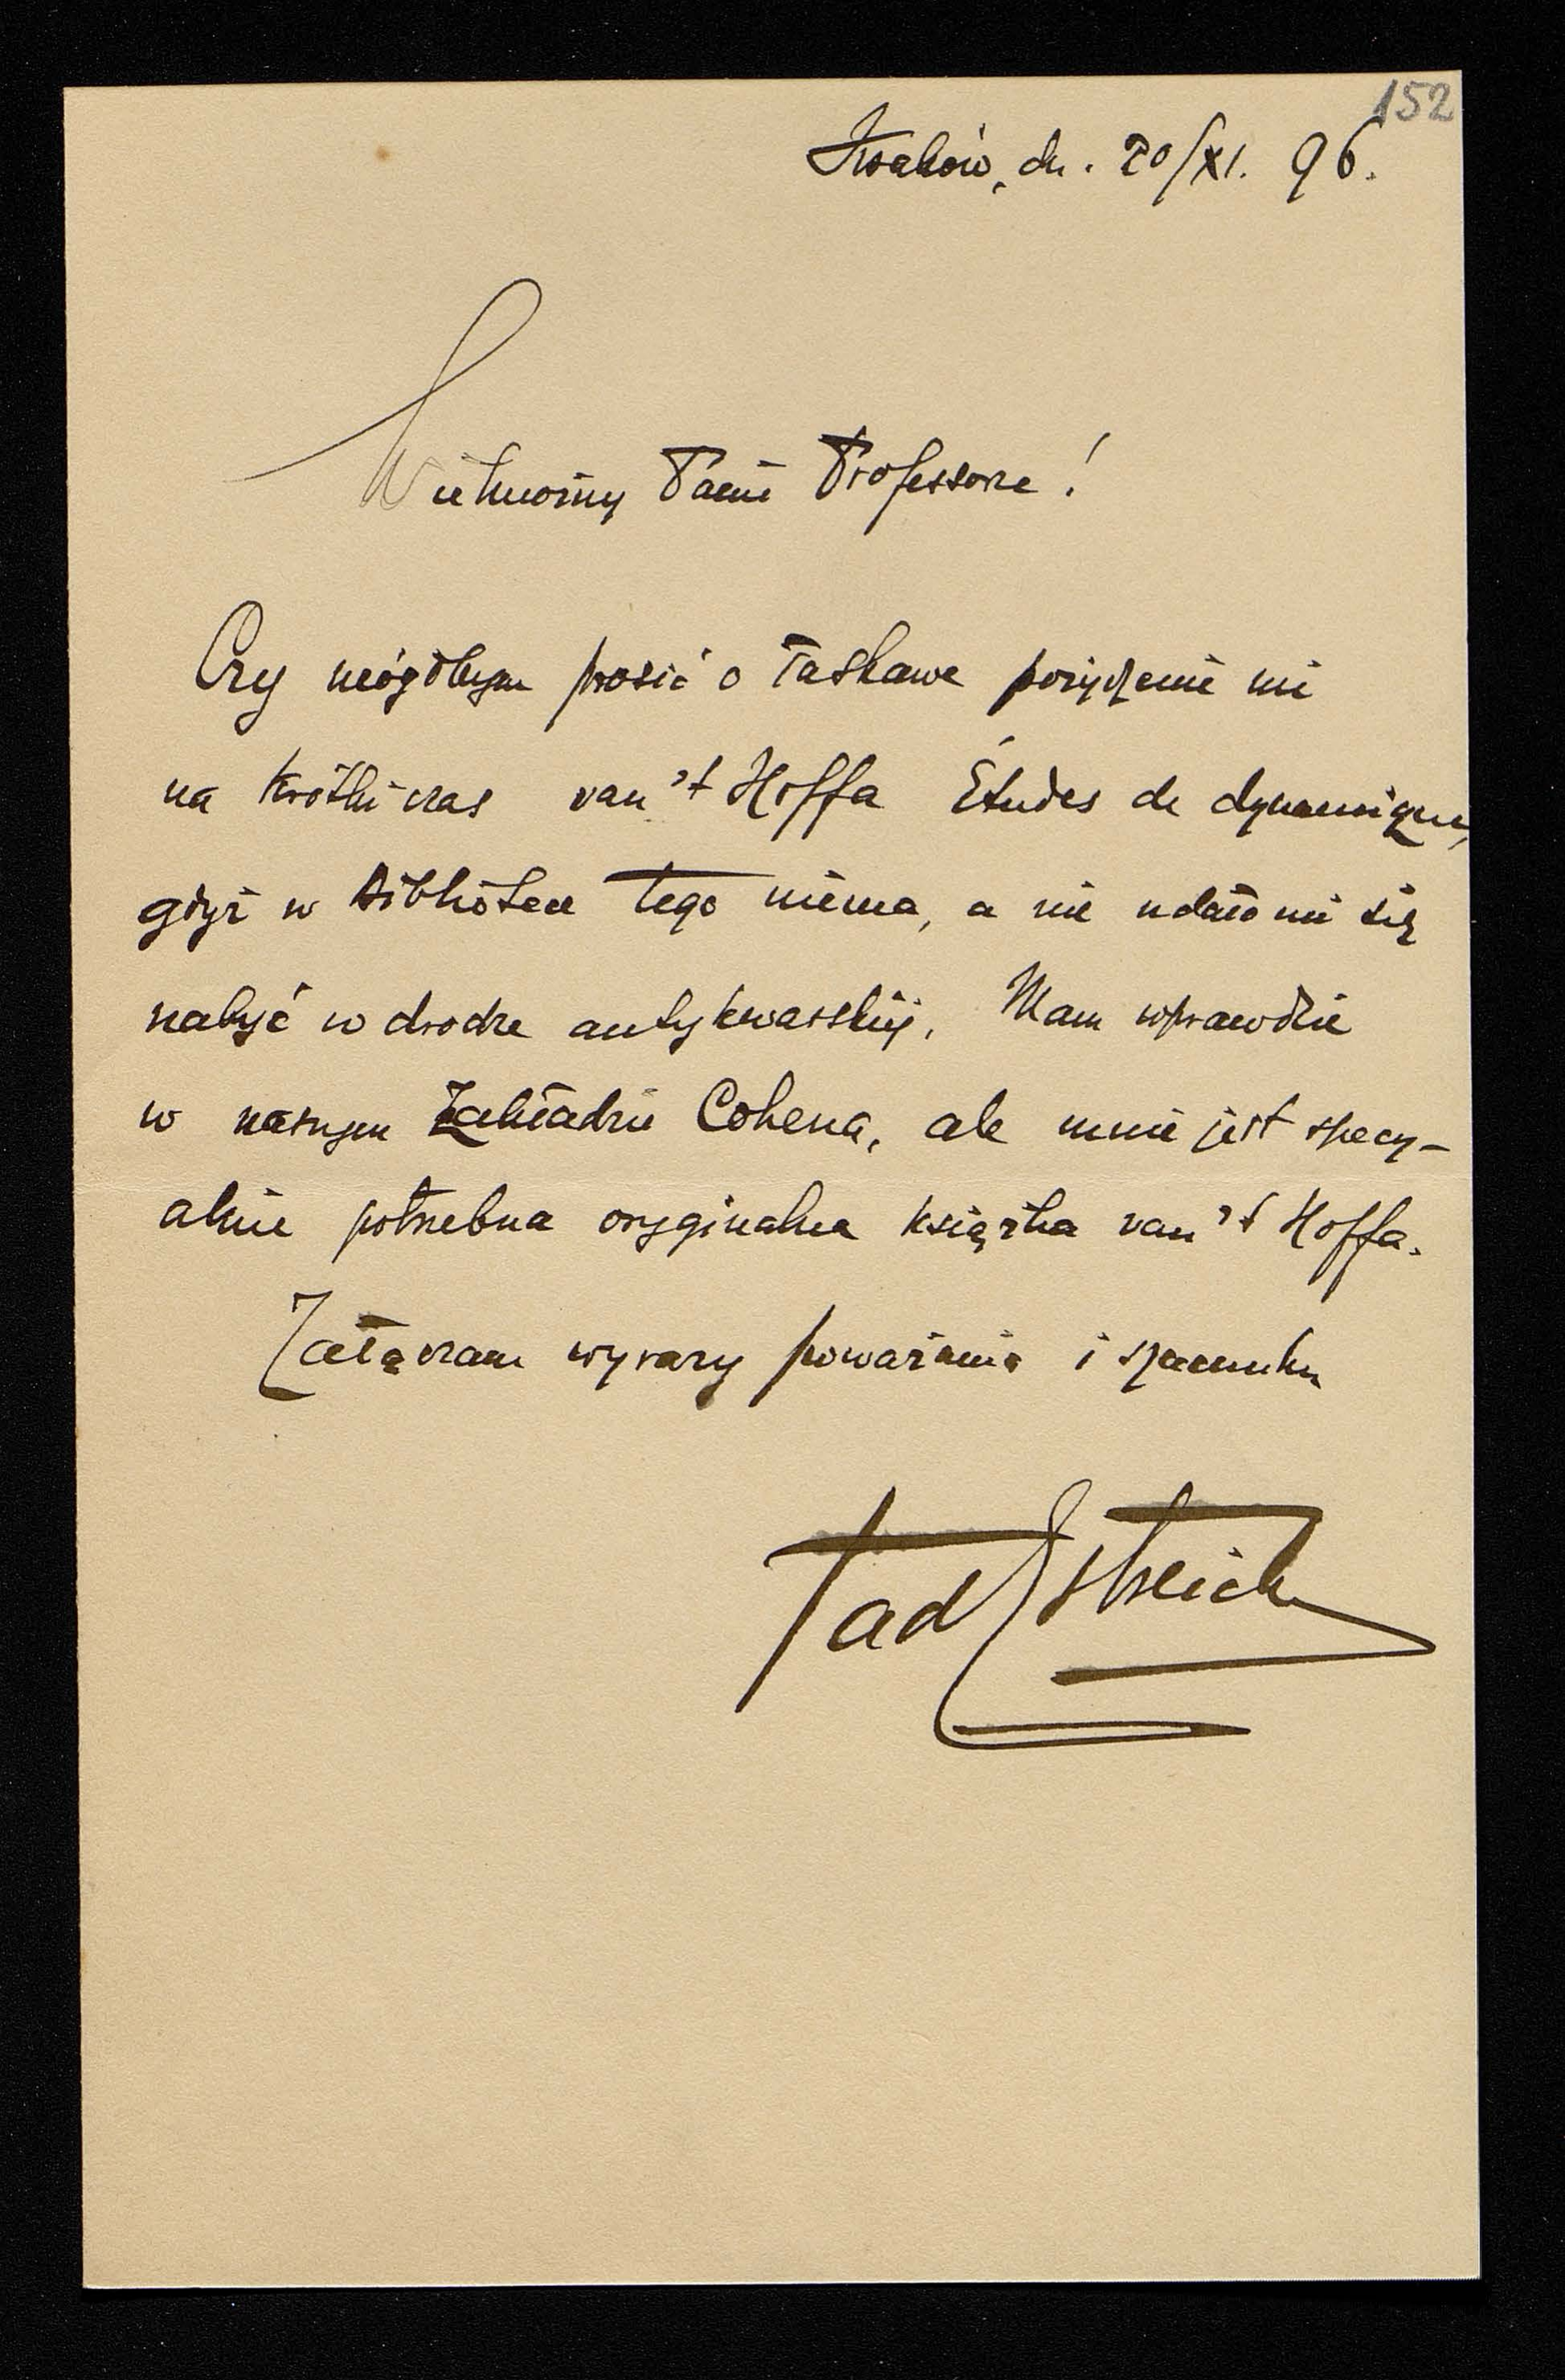 152
Kraków, dn. 20/XI. 96.
Wielmożny Panie Profesorze!
Czy mógłbym prosić o łaskawe pożyczenie mi
na krótki czas van't Hoffa Études de dynamique,
gdyż w bibliotece tego niema, a nie udało mi się
nabyć w drodze antykwarskiéj. Mam wprawdzie
w naszym Zakładzie Cohena, ale mnie jest specy-
alnie potrzebna oryginalna książka van't Hoffa.
Załączam wyrazy poważania i szacunku
Tad Estreich